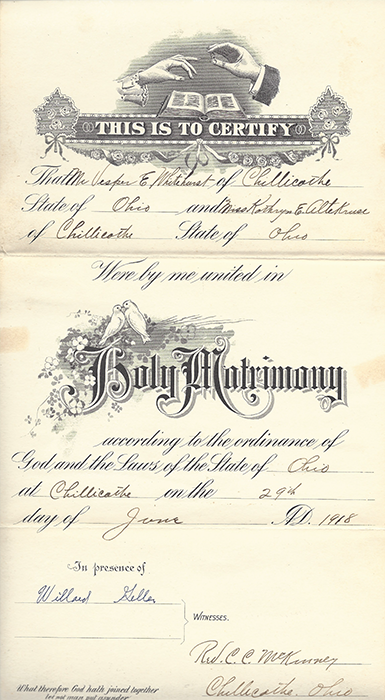 THIS IS TO CERTIFY
That Mr Vesper E. Whitehurst of Chillicothe
State of Ohio and Miss Kathryn E. Altekruse
of Chillicothe State of Ohio
Were by me united in
Holy Matrimony
according to the ordinance of
God and the Laws of the State of Ohio
at Chillicothe on the 29th
day of June A.D. 1918
In presence of
Willard
WITNESSES.
Rev. C. C. McKinney
Chillicothe, Ohio
What therefore God hath joined together
let not man put asunder